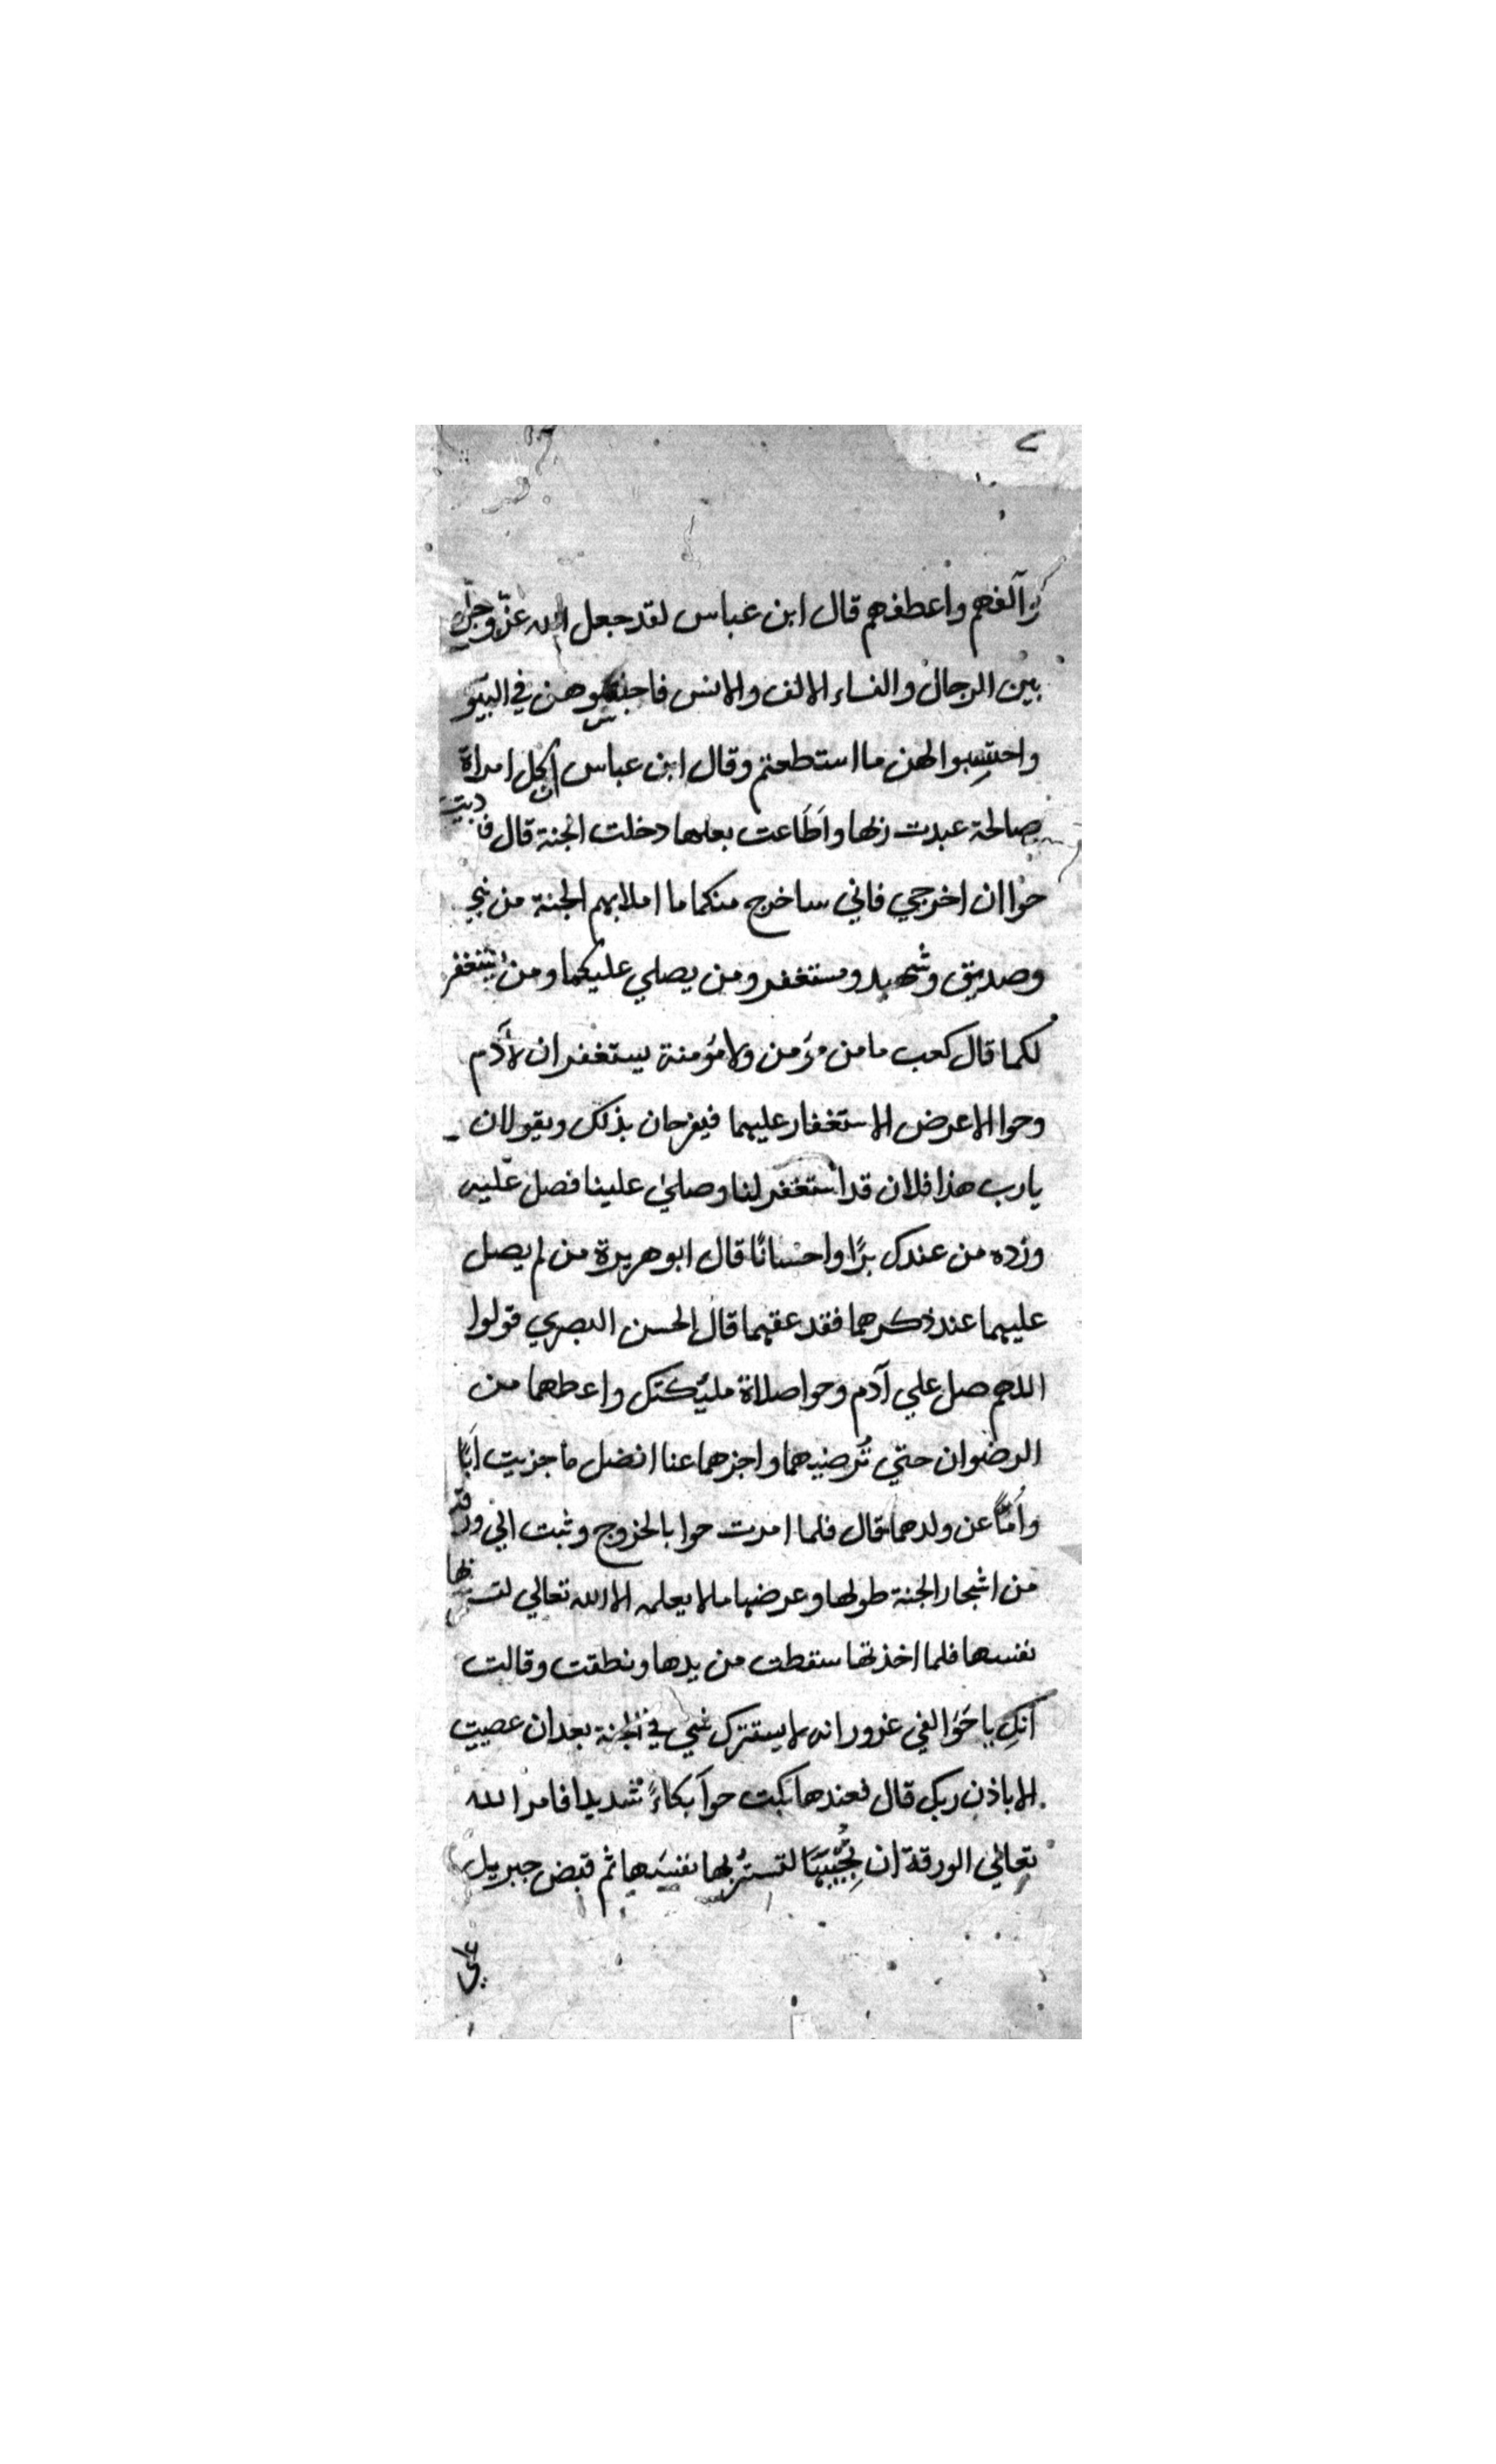 وآلفهم واعطفهم قال ابن عباس لقد جعل الله عزّ وجلّ
بين الرجال والنساء الالف والانس فاحبسوهن في البيو
واحتسبوا لهن ما استطعتم وقال ابن عباس ان كل امراة
صالحة عبدت ربها واَطَاعت بعلها دخلت الجنة قال فا
ديت
حوا ان اخرجي فاني ساخرج منكما ما املا بهم الجنة من نبي
وصديق وشهيد ومستغفر ومن يصلي عليكما ومن يستغفر
لكما قال كعب ما من مؤمن ولا مؤمنة يستغفران لآدم
وحوا الا عرض الاستغفار عليهما فيفرحان بذلك ويقولان
يا رب هذا فلان قد استغفر لنا وصلي علينا فصل عليه
وزده من عندك برًا واحسانًا قال ابو هريرة من لم يصل
عليهما عند ذكرهما فقد عقهما قال الحسن البصري قولوا
اللهم صل علي آدم وحوا صلاة مليكتك واعطهما من
الرضوان حتي تُرضيهما واجزهما عنا افضل ما جزيت اَبًا
واُمًّا عن ولدهما قال فلما امرت حوا بالخروج وثبت الي ورقة
من اشجار الجنة طولها وعرضها ما لا يعلمه الا الله تعالي لتستر بها
نفسها فلما اخذتها سقطت من يدها ونطقت وقالت
اَنكِ يا حَوا لفي غرور انه لا يستترك شي في الجنة بعد ان عصيت
الا باذن ربك قال فعندها بكت حوآ بكاءً شديدا فامر الله
تعالي الورقة ان تُجِيبَهَا لتستر بها نفسها ثم قبض جبريل
علي